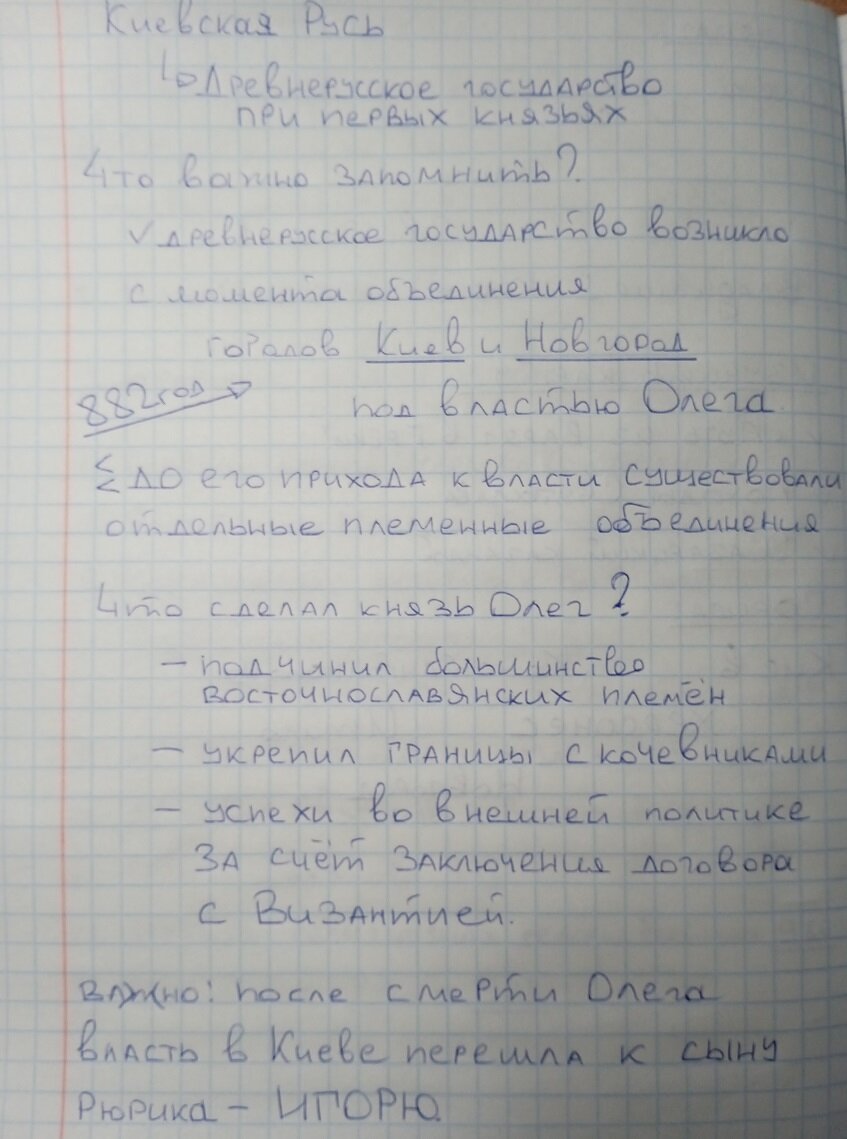 Киевская Русь
↳ Древнерусское государство
при первых князьях
Что важно запомнить?
✓ древнерусское государство возникло
с момента объединения
городов Киев и Новгород
882 год →
под властью Олега
до его прихода к власти существовали
отдельные племенные объединения
Что сделал князь Олег?
- подчинил большинство
восточнославянских племён
- укрепил границы с кочевниками
- успехи во внешней политике
за счёт заключения договора
с Византией.
важно: после смерти Олега
власть в Киеве перешла к сыну
Рюрика - ИГОРЮ